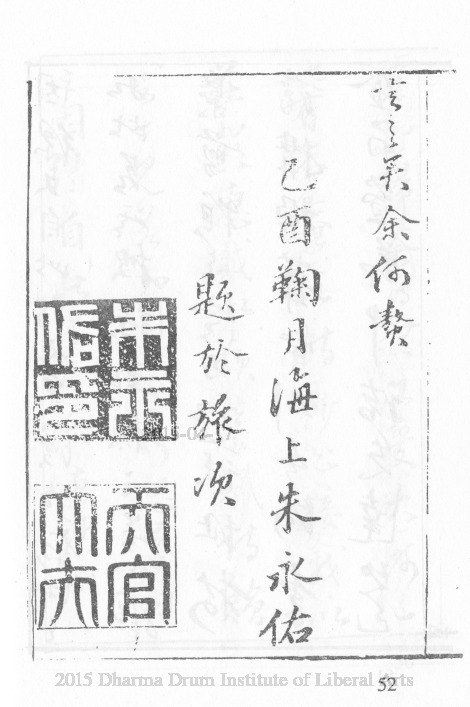 之矣余何贅
己酉鞠月海上朱永佑
題於旅次
朱永
佑印
天官
大夫
2015 Dharma Drum Institute of Liberal Arts
52